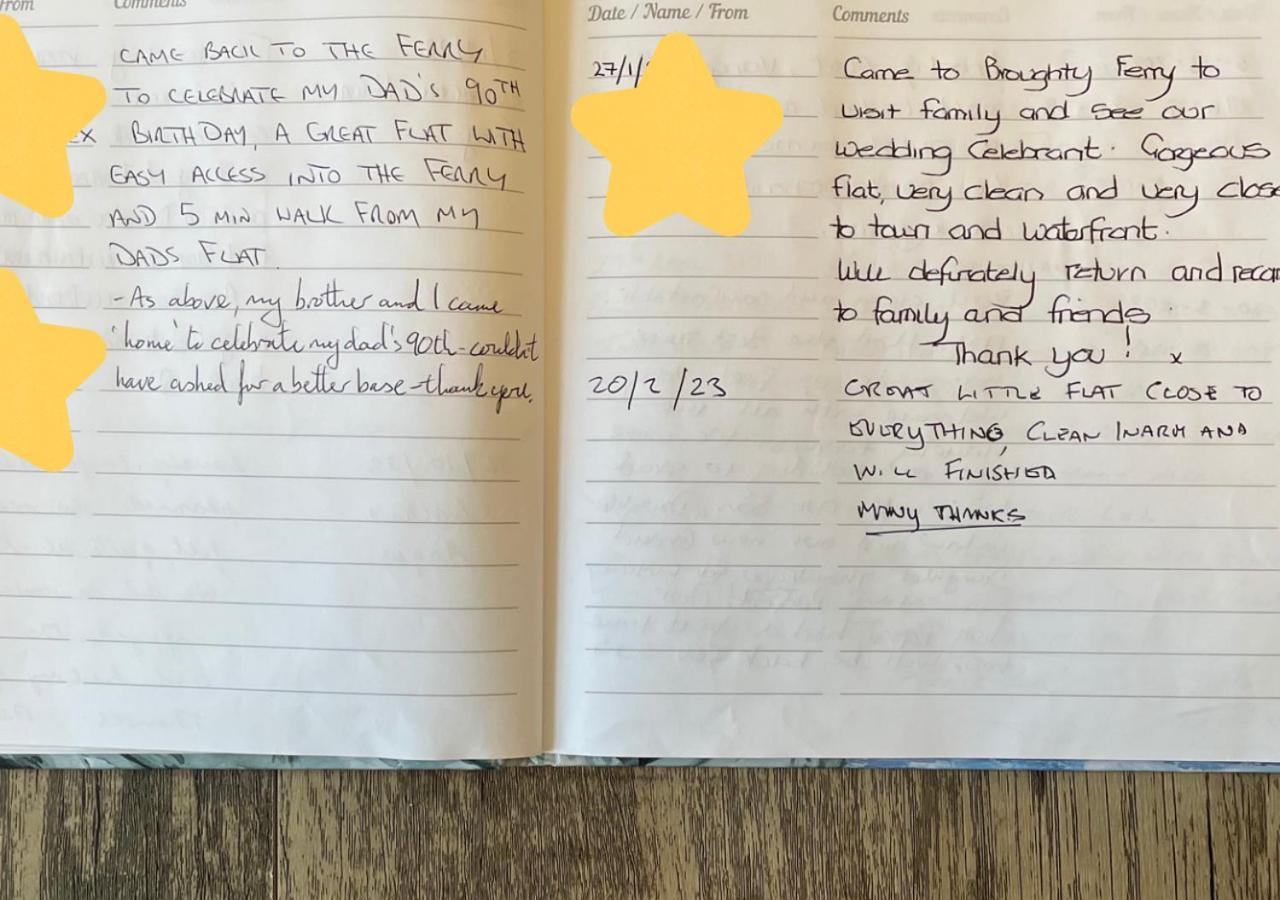 From
Comments
CAME BACK TO THE FERRY
TO CELEBRATE MY DAD'S 90TH
EX BIRTHDAY, A GREAT FLAT WITH
EASY ACCESS INTO THE FERRY
AND 5 MIN WALK FROM MY
DADS FLAT.
- As above, my brother and I came
'home' to celebrate my dad's 90th - couldn't
have asked for a better base - thank you.
Date / Name / From
Comments
27/1/
Came to Broughty Ferry to
visit family and see our
wedding Celebrant. Gorgeous
flat, very clean and very close
to town and waterfront.
Will definately return and recom
to family and friends.
Thank you! x
20/2/23
GREAT LITTLE FLAT CLOSE TO
EVERYTHING, CLEAN WARM AND
WELL FINISHED
MANY THANKS